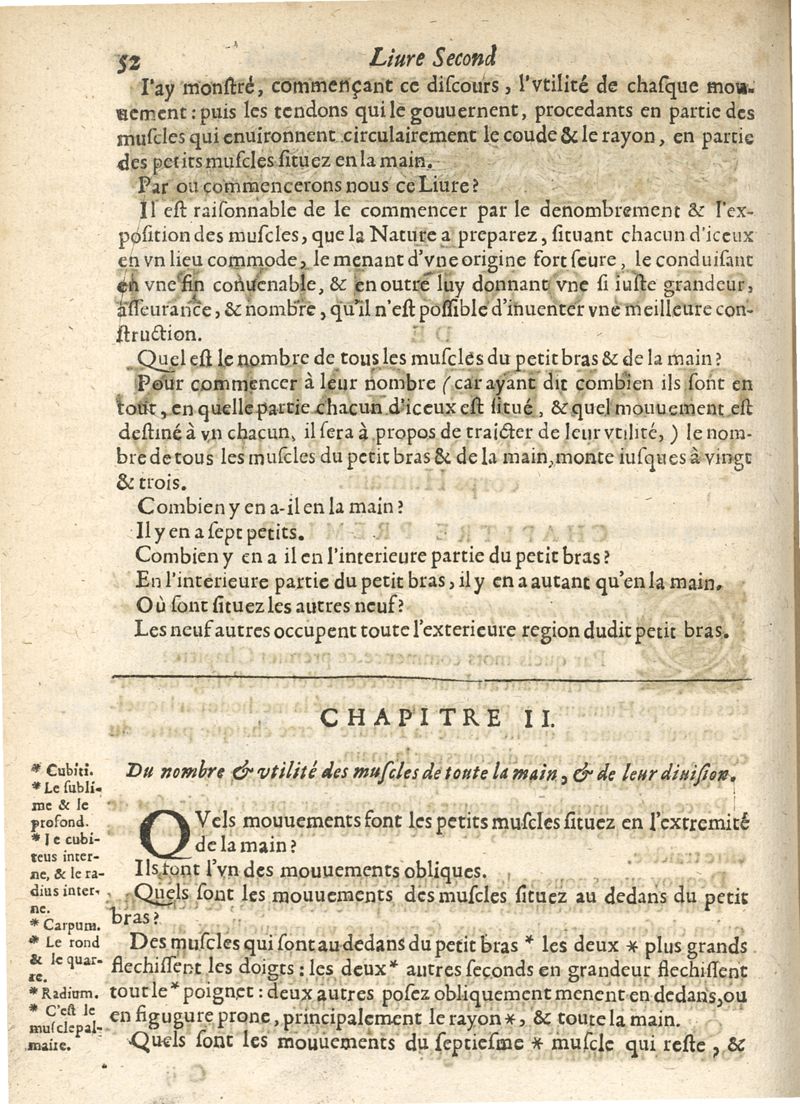 52
Liure Second
I'ay monſtré, commençant ce diſcours, l'vtilité de chaſque mou-
uement: puis les tendons qui le gouuernent, procedants en partie des
muſcles qui enuironnent circulairement le coude & le rayon, en partie
des petits muſcles ſituez en la main.
Par ou commencerons nous ce Liure?
Il eſt raiſonnable de le commencer par le denombrement & l'ex-
poſition des muſcles, que la Nature a preparez, ſituant chacun d'iceux
en vn lieu commode, le menant d'vne origine fort ſeure, le conduiſant
en vne fin conuenable, & en outre luy donnant vne ſi iuſte grandeur,
aſſeurance, & nombre, qu'il n'eſt poſſible d'inuenter vne meilleure con-
ſtruction.
Quel eſt le nombre de tous les muſcles du petit bras & de la main?
Pour commencer à leur nombre (car ayant dit combien ils ſont en
tout, en quelle partie chacun d'iceux eſt ſitué, & quel mouuement eſt
deſtiné à vn chacun, il ſera à propos de traicter de leur vtilité,) le nom-
bre de tous les muſcles du petit bras & de la main, monte iuſques à vingt
& trois.
Combien y en a-il en la main?
Il y en a ſept petits.
Combien y en a il en l'interieure partie du petit bras?
En l'interieure partie du petit bras, il y en a autant qu'en la main.
Où ſont ſituez les autres neuf?
Les neuf autres occupent toute l'exterieure region dudit petit bras.
CHAPITRE II.
Du nombre & vtilité des muſcles de toute la main, & de leur diuiſion.
QVels mouuements font les petits muſcles ſituez en l'extremité
de la main?
Ils font l'vn des mouuements obliques.
Quels ſont les mouuements des muſcles ſituez au dedans du petit
bras?
Des muſcles qui ſont au dedans du petit bras * les deux * plus grands
flechiſſent les doigts: les deux * autres ſeconds en grandeur flechiſſent
tout le * poignet: deux autres poſez obliquement menent en dedans, ou
en figugure prone, principalement le rayon *, & toute la main.
Quels ſont les mouuements du ſeptieſme * muſcle qui reſte, &
* Cubiti.
* Le ſubli-
me & le
profond.
* Le cubi-
teus inter-
ne, & le ra-
dius inter-
ne.
* Carpum.
* Le rond
& le quar-
re.
* Radium.
* C'eſt le
muſcle pal-
maire.